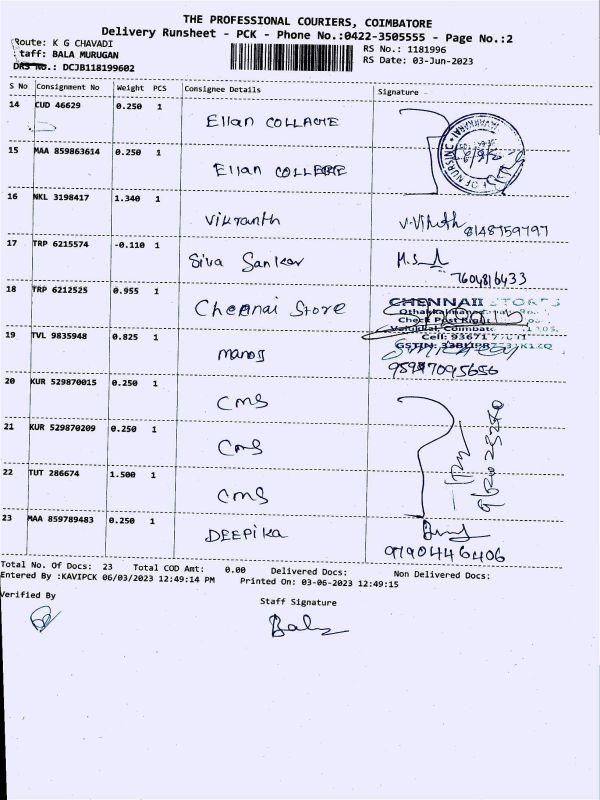 THE PROFESSIONAL COURIERS, COIMBATORE
Delivery Runsheet - PCK - Phone No.:0422-3505555 - Page No.:2
Route: K G CHAVADI
RS No.: 1181996
taff: BALA MURUGAN
RS Date: 03-Jun-2023
DRS No.: DCJB118199602
S No Consignment No Weight PCS Consignee Details Signature
14 CUD 46629 0.250 1 Ellan COLLAGE
15 MAA 859863614 0.250 1 Ellan COLLEGE
OF NURSING
16 NKL 3198417 1.340 1 Vikranth 8148759797
17 TRP 6215574 -0.110 1 Siva Sankar M.S
7604816433
18 TRP 6212525 0.955 1 Chennai Store
CHENNAI STORES
Check Post
Cell: 93671
GSTIN:
19 TVL 9835948 0.825 1 manoj
20 KUR 529870015 0.250 1 CMS
21 KUR 529870209 0.250 1 CMS
22 TUT 286674 1.500 1 CMS
23 MAA 859789483 0.250 1 DEEPIKA
Total No. Of Docs: 23 Total COD Amt: 0.00 Delivered Docs: Non Delivered Docs:
Entered By :KAVIPCK 06/03/2023 12:49:14 PM Printed On: 03-06-2023 12:49:15
Verified By
Staff Signature
Bala